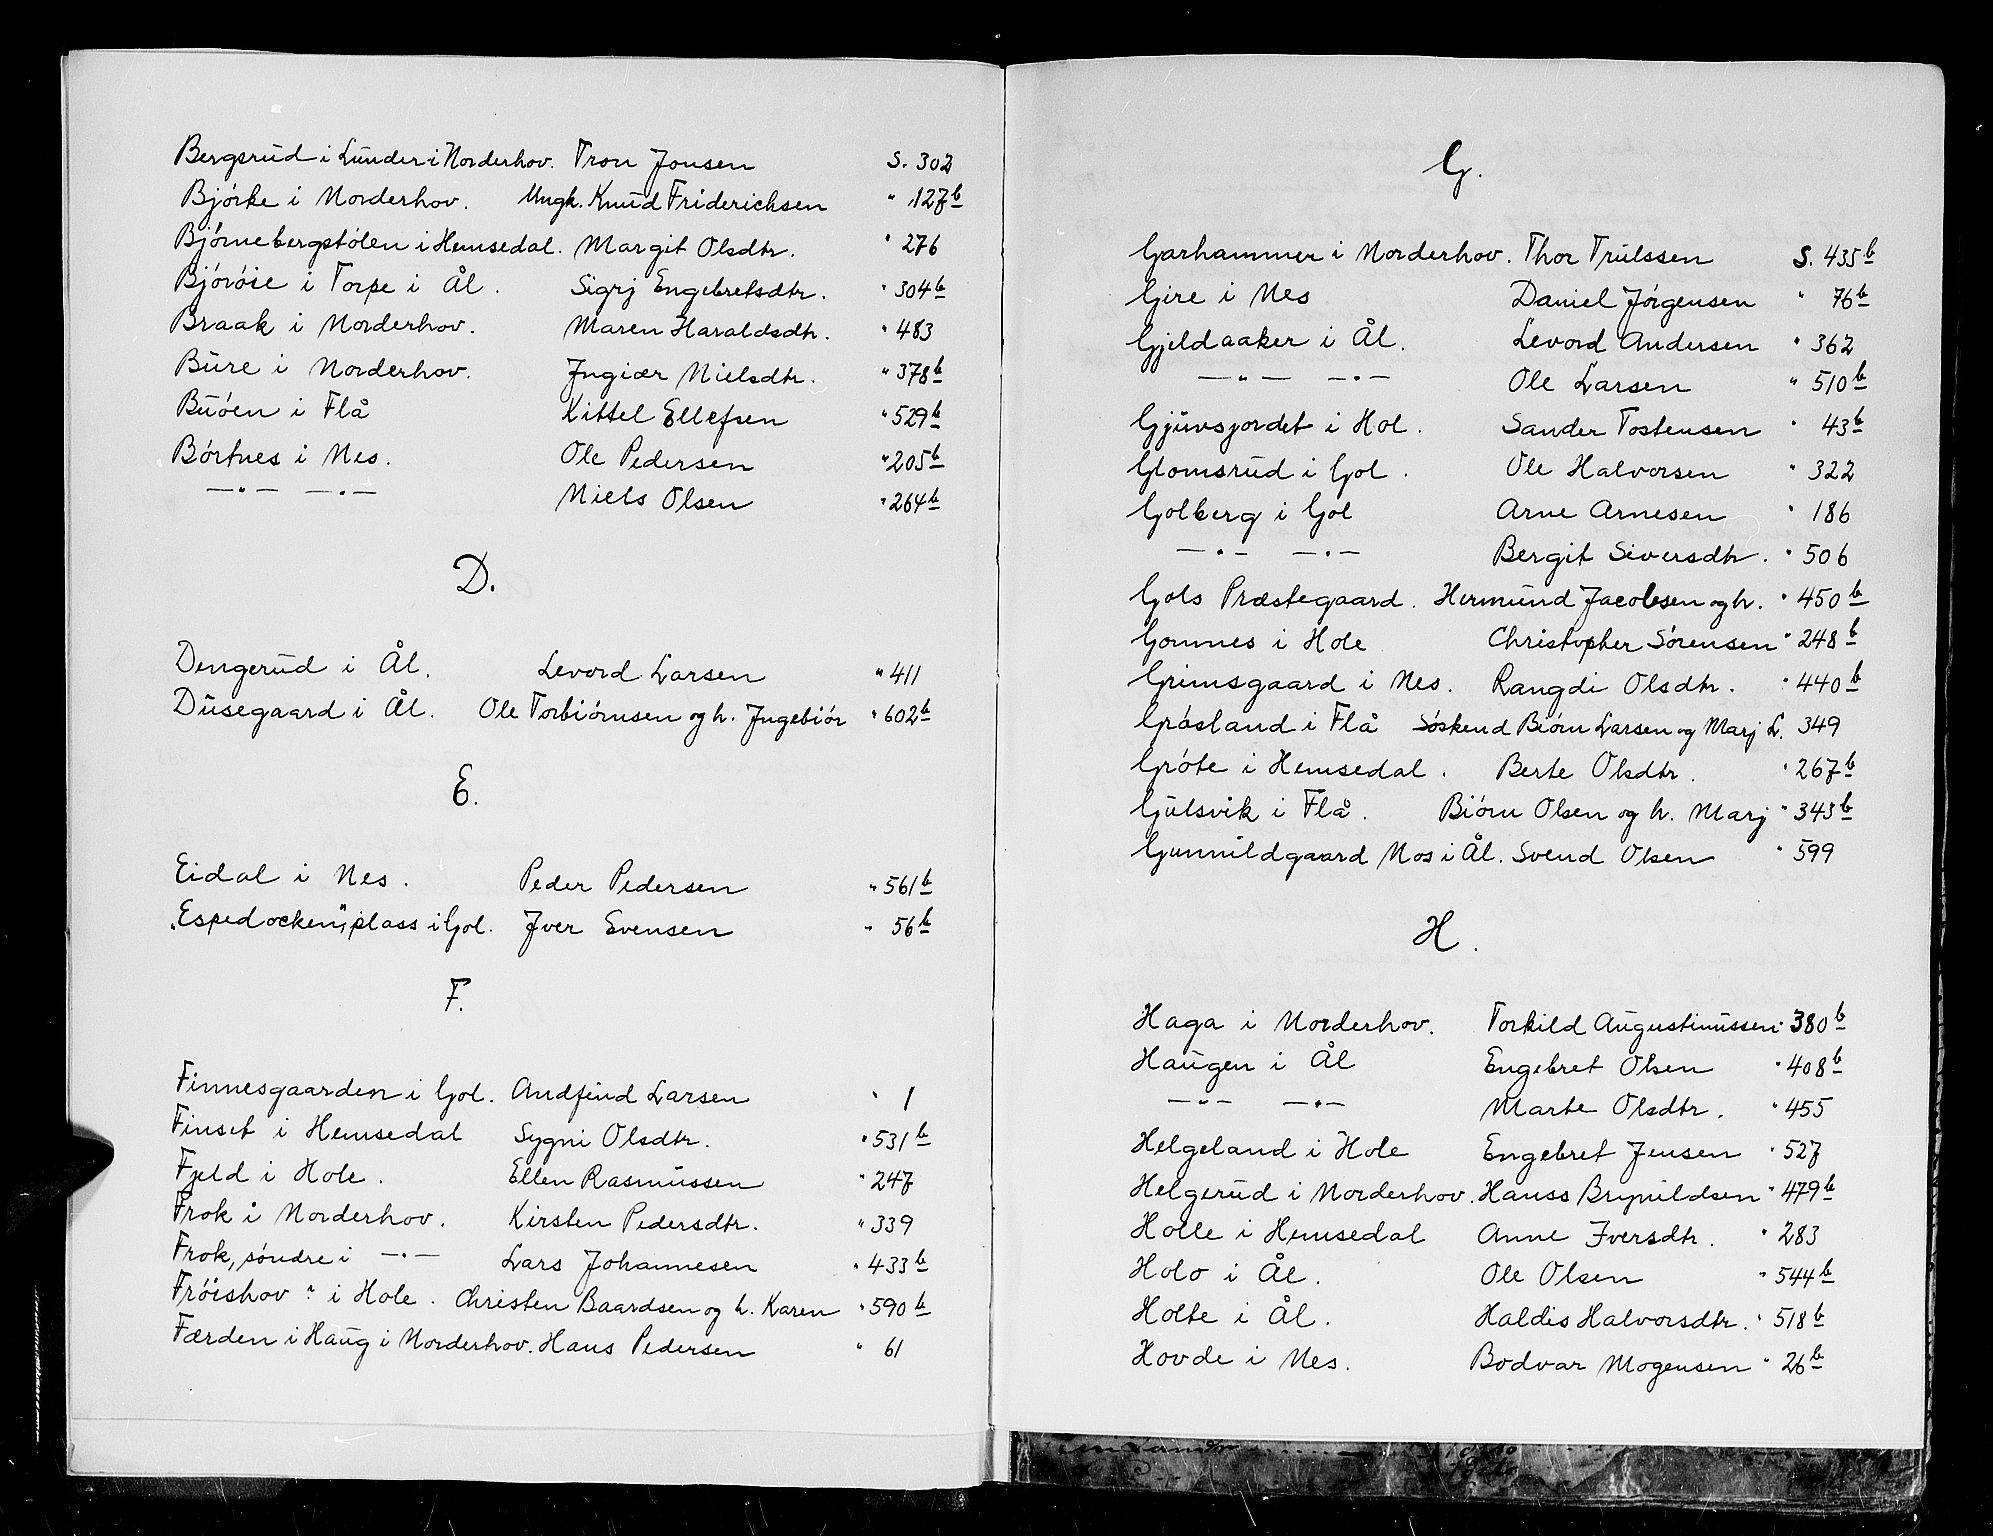 Bergsrud i Lunder i Norderhov. Tron Jonsen S. 302
Bjørke i Norderhov. Ungk. Knud Friderichsen " 127b
Bjørnebergstølen i Hemsedal. Margit Olsdtr. " 276
Bjørøie i Torpe i Ål. Sigrj Engebretsdtr. " 304b
Braak i Norderhov. Maren Haraldsdtr. " 483
Bure i Norderhov. Jngiær Nielsdtr. " 378b
Buøen i Flå Kittel Ellefsen " 529b
Børtnes i Nes. Ole Pedersen " 205b
—"— —"— Niels Olsen " 264b
D.
Dengerud i Ål. Levord Larsen " 411
Dusegaard i Ål. Ole Torbiørnsen og h. Jngebiør " 602b
E.
Eidal i Nes. Peder Pedersen " 561b
"Espedocken", plass i Gol. Jver Evensen " 56b
F.
Finnesgaarden i Gol. Andfind Larsen " 1
Finset i Hemsedal Sygni Olsdtr. " 531b
Fjeld i Hole. Ellen Rasmussen " 247
Frok i Norderhov. Kirsten Pedersdtr. " 339
Frok, søndre i —"— Lars Johannesen " 433b
Frøishov ? i Hole. Christen Baardsen og h. Karen " 590b
Færden i Haug i Norderhov. Hans Pedersen " 61
G.
Garhammer i Norderhov. Thor Trulssen S. 435b
Gire i Nes Daniel Jørgensen " 76b
Gjeldaaker i Ål. Levord Andersen " 362
—"— —"— Ole Larsen " 510b
Gjuvsjordet i Hol. Sander Tostensen " 43b
Glomsrud i Gol. Ole Halvorsen " 322
Golberg i Gol Arne Arnesen " 186
—"— —"— Bergit Siversdtr. " 506
Gols Præstegaard. Hermund Jacobsen og h. " 450b
Gomnes i Hole Christopher Sørensen " 248b
Grimsgaard i Nes. Rangdi Olsdtr. " 440b
Grøsland i Flå Søskend Biørn Larsen og Marj L. 349
Grøte i Hemsedal. Berte Olsdtr. " 267b
Gulsvik i Flå. Biørn Olsen og h. Marj " 343b
Gunnildgaard Nos i Ål. Svend Olsen " 599
H.
Haga i Norderhov. Torkild Augustinussen " 380b
Haugen i Ål Engebret Olsen " 408b
—"— —"— Marte Olsdtr. " 455
Helgeland i Hole Engebret Jensen " 527
Helgerud i Norderhov. Hanss Brynildsen " 479b
Holle i Hemsedal Anne Iversdtr. " 283
Holo i Ål. Ole Olsen " 544b
Holte i Ål. Haldis Halvorsdtr. " 518b
Hovde i Nes. Bodvar Mogensen " 26b